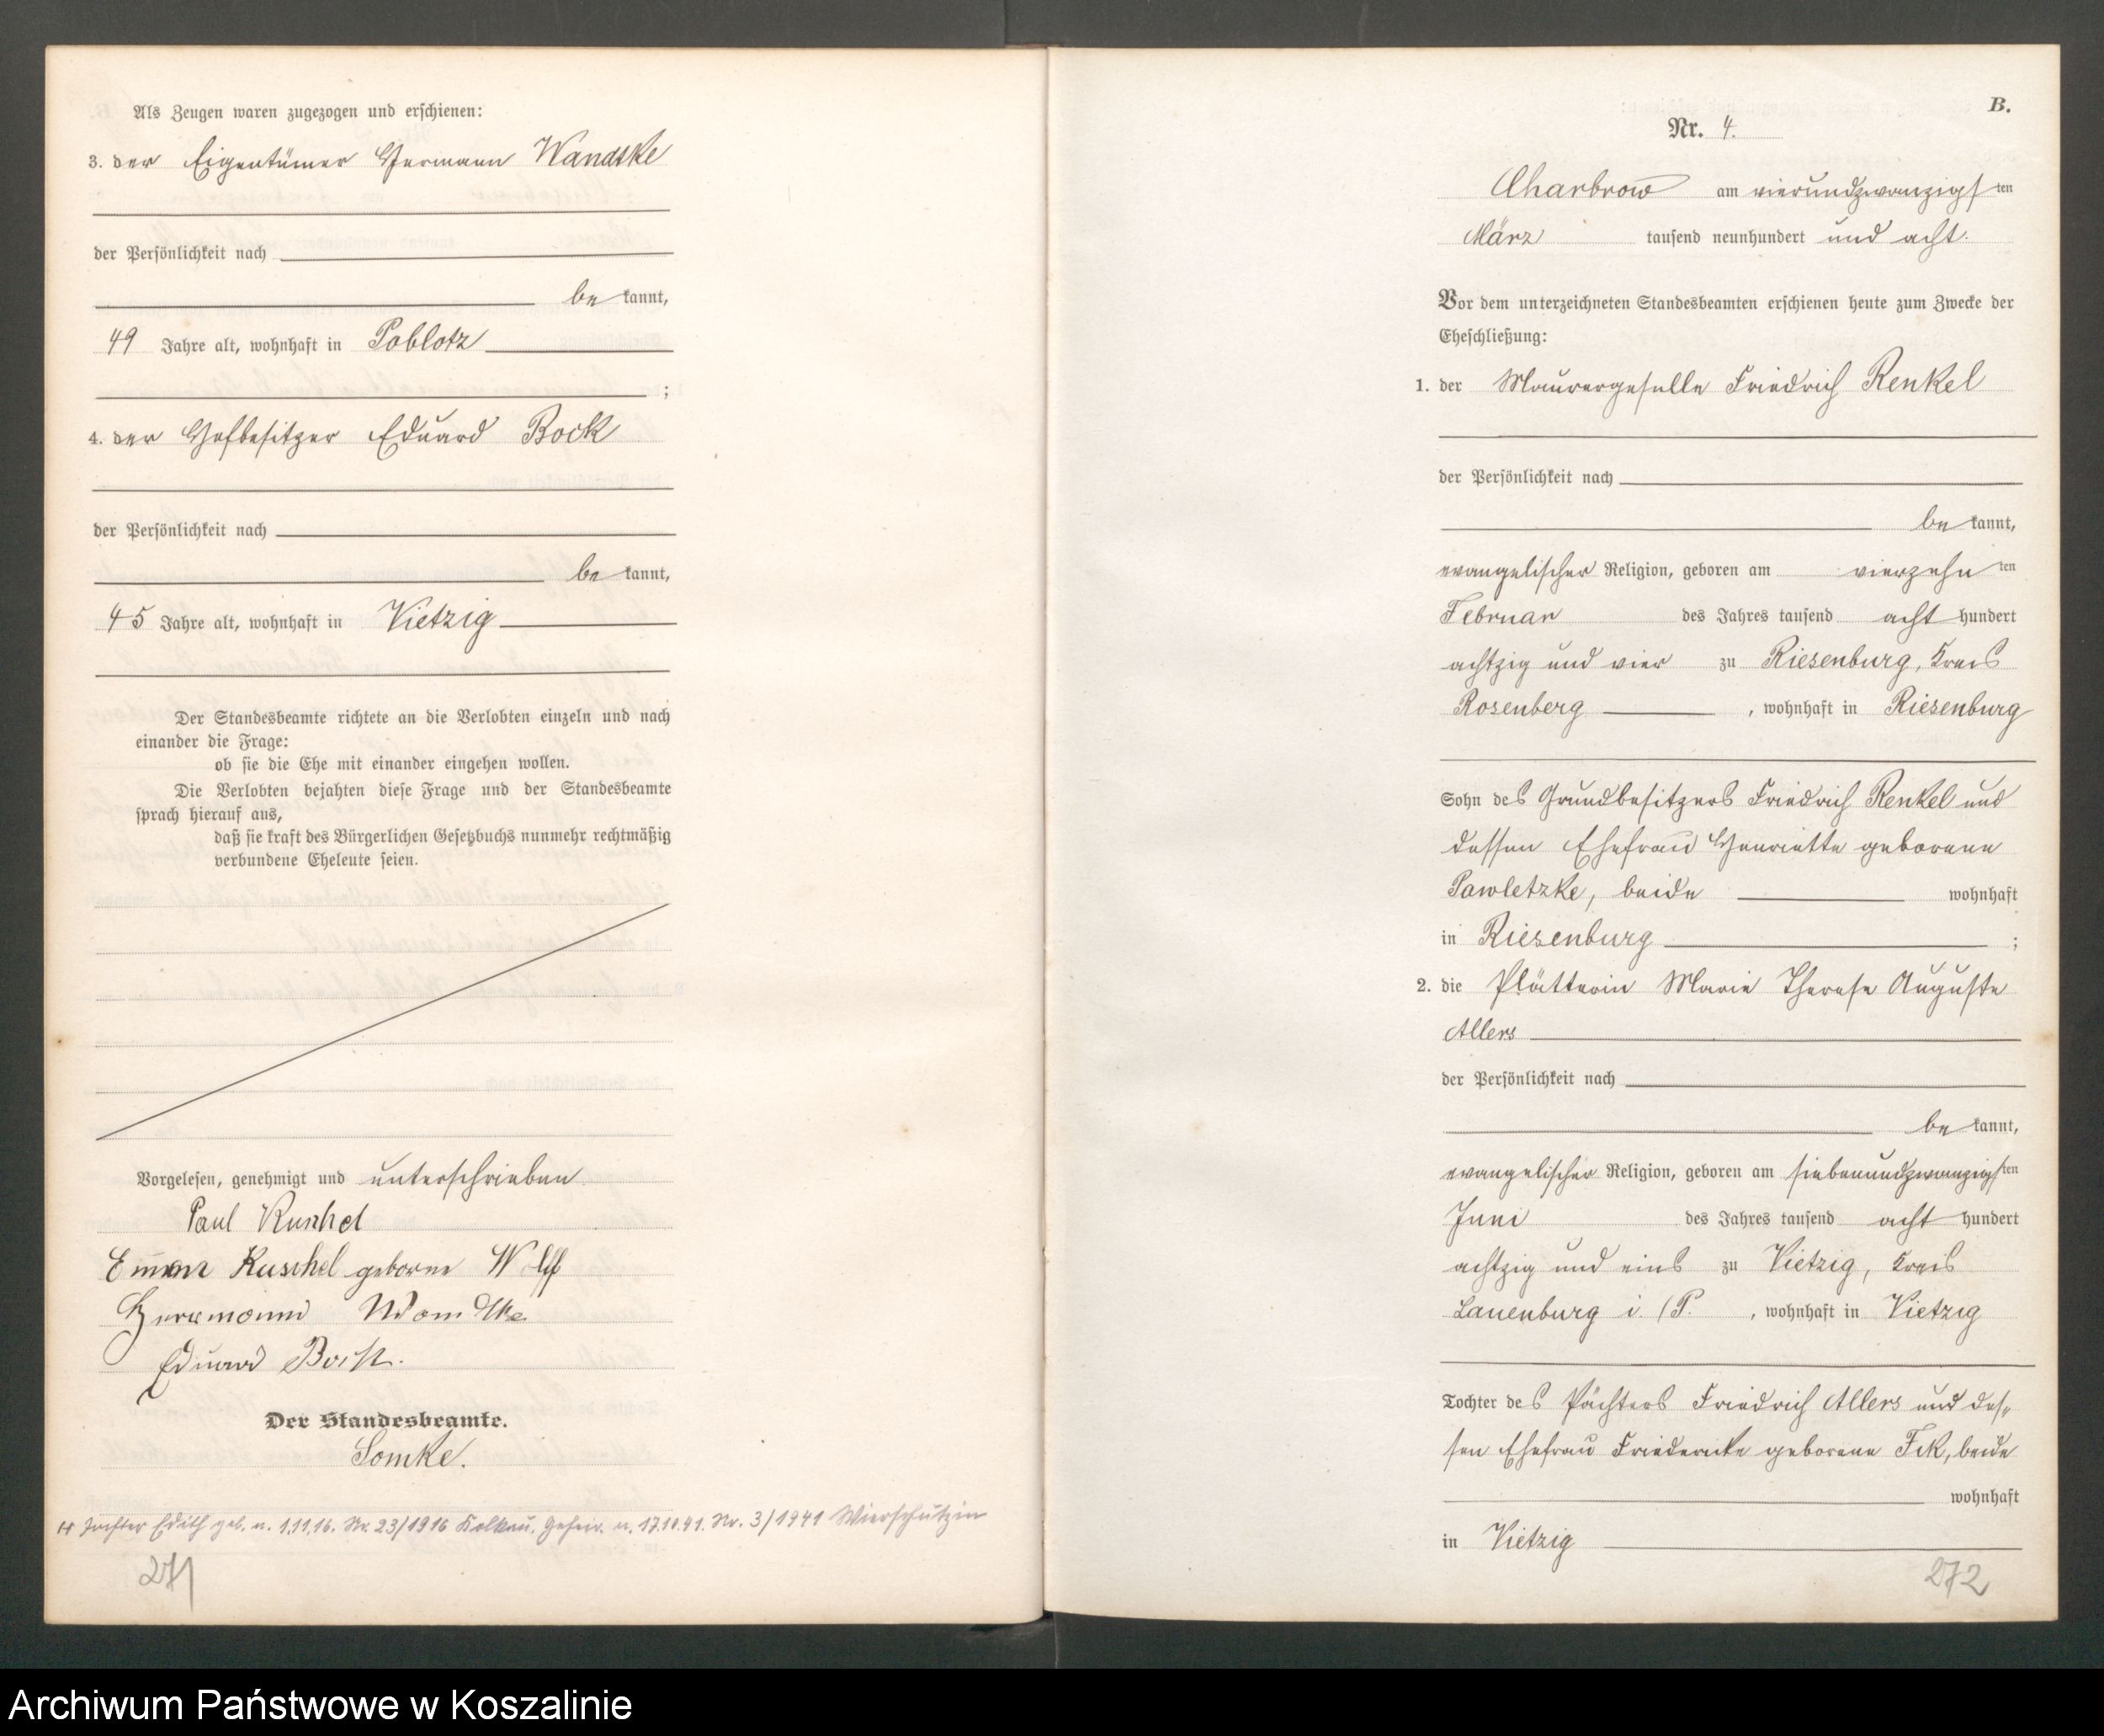 Als Zeugen waren zugezogen und erschienen:
3. der Eigentümer Hermann Wandtke
der Persönlichkeit nach
be kannt,
49 Jahre alt, wohnhaft in Poblotz
;
4. der Hofbesitzer Eduard Bock
der Persönlichkeit nach
be kannt,
45 Jahre alt, wohnhaft in Vietzig
Der Standesbeamte richtete an die Verlobten einzeln und nach
einander die Frage:
ob sie die Ehe mit einander eingehen wollen.
Die Verlobten bejahten diese Frage und der Standesbeamte
sprach hierauf aus,
daß sie kraft des Bürgerlichen Gesetzbuchs nunmehr rechtmäßig
verbundene Eheleute seien.
Vorgelesen, genehmigt und unterschrieben
Paul Kuschel
Emma Kuschel geborne Wolff
Herrmann Wandtke
Eduard Bock.
Der Standesbeamte.
Lomke.
Tochter Edith geb. a. 1.11.16. Nr. 23/1916 Kolkau, Geheir. a. 17.10.41. Nr. 3/1941 Wierschutzin
271
B.
Nr. 4.
Charbrow am vierundzwanzigsten
März tausend neunhundert und acht.
Vor dem unterzeichneten Standesbeamten erschienen heute zum Zwecke der
Eheschließung:
1. der Maurergeselle Friedrich Renkel
der Persönlichkeit nach
be kannt,
evangelischer Religion, geboren am vierzehn ten
Februar des Jahres tausend acht hundert
achtzig und vier zu Riesenburg, Kreis
Rosenberg, wohnhaft in Riesenburg
Sohn des Grundbesitzers Friedrich Renkel und
dessen Ehefrau Henriette geborene
Pawletzke, beide wohnhaft
in Riesenburg ;
2. die Plätterin Marie Therese Auguste
Allers
der Persönlichkeit nach
be kannt,
evangelischer Religion, geboren am siebenundzwanzigsten
Juni des Jahres tausend acht hundert
achtzig und eins zu Vietzig, Kreis
Lauenburg i./P. , wohnhaft in Vietzig
Tochter des Pächters Friedrich Allers und des-
sen Ehefrau Friedericke geborene Fik, beide
wohnhaft
in Vietzig
272
Archiwum Państwowe w Koszalinie